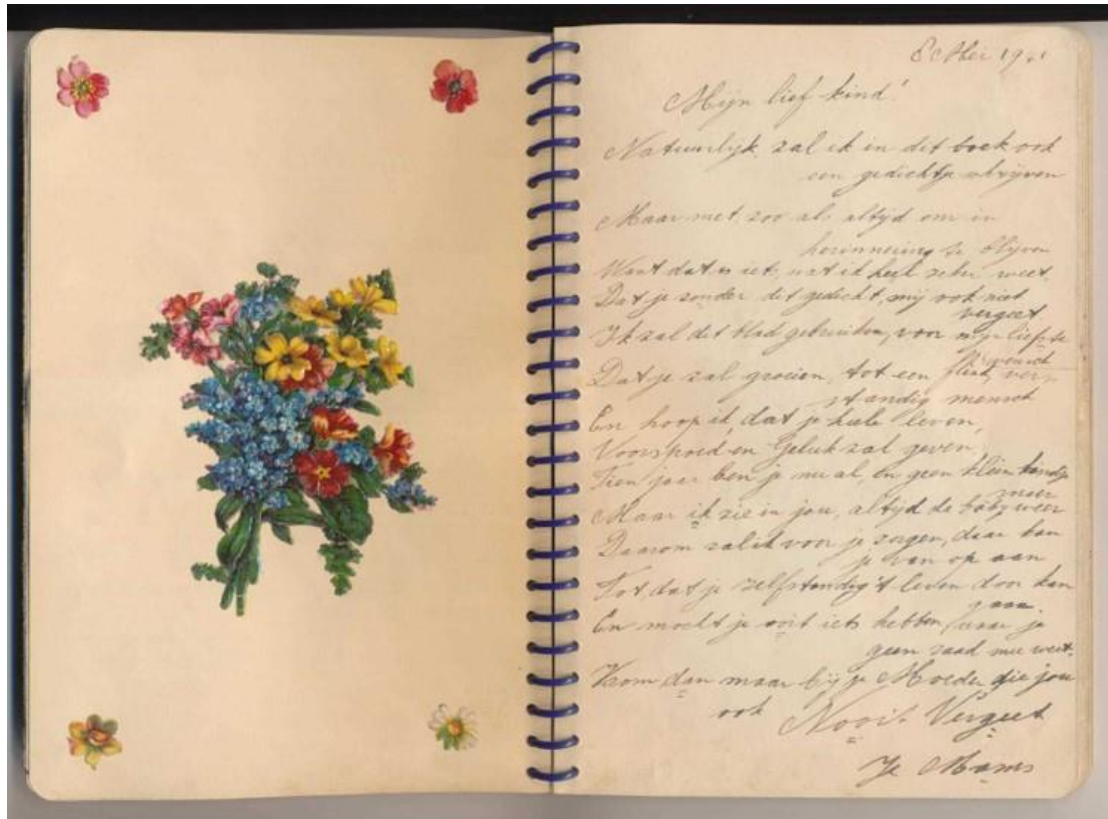 8 Mei 19
Mijn lief kind!
Natuurlijk zal ik in dit boek ook
een gedichtje schrijven
Maar niet, zoo als altijd om in
herinnering te blijven
Want dat is iets, wat ik heel zeker weet.
Dat je zonder dit gedicht, mij ook niet
vergeet
Ik zal dit blad gebruiken, voor mijn liefste
wensch
Dat je zal groeien, tot een flink, ver-
standig mensch
En hoop ik dat je heele leven,
Voorspoed en Geluk zal geven,
Tien jaar ben je nu al, en geen klein kindje
meer
Maar ik zie in jou, altijd de baby weer
Daarom zal ik voor je zorgen, daar kan
je van op aan
Tot dat je zelfstandig 't leven door kan
gaan.
En mocht je ooit iets hebben, waar je
geen raad mee weet.
Kom dan maar bij je Moeder die jou
ook Nooit Vergeet
Je Mams